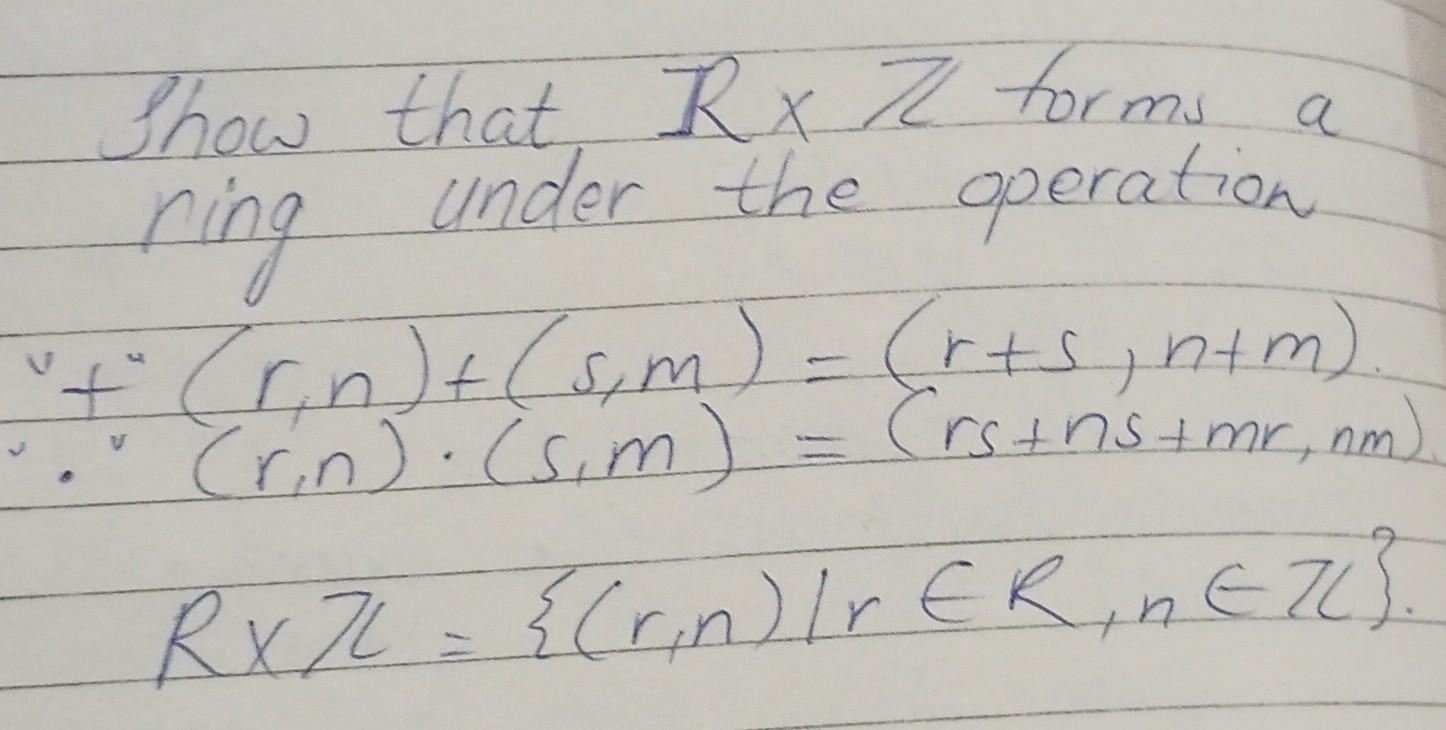 Show that R x ℤ forms a
ring under the operation
"+" (r,n)+(s,m) = (r+s, n+m).
"." (r,n)·(s,m) = (rs+ns+mr, nm).
R x ℤ = {(r,n) / r ∈ R, n ∈ ℤ}.